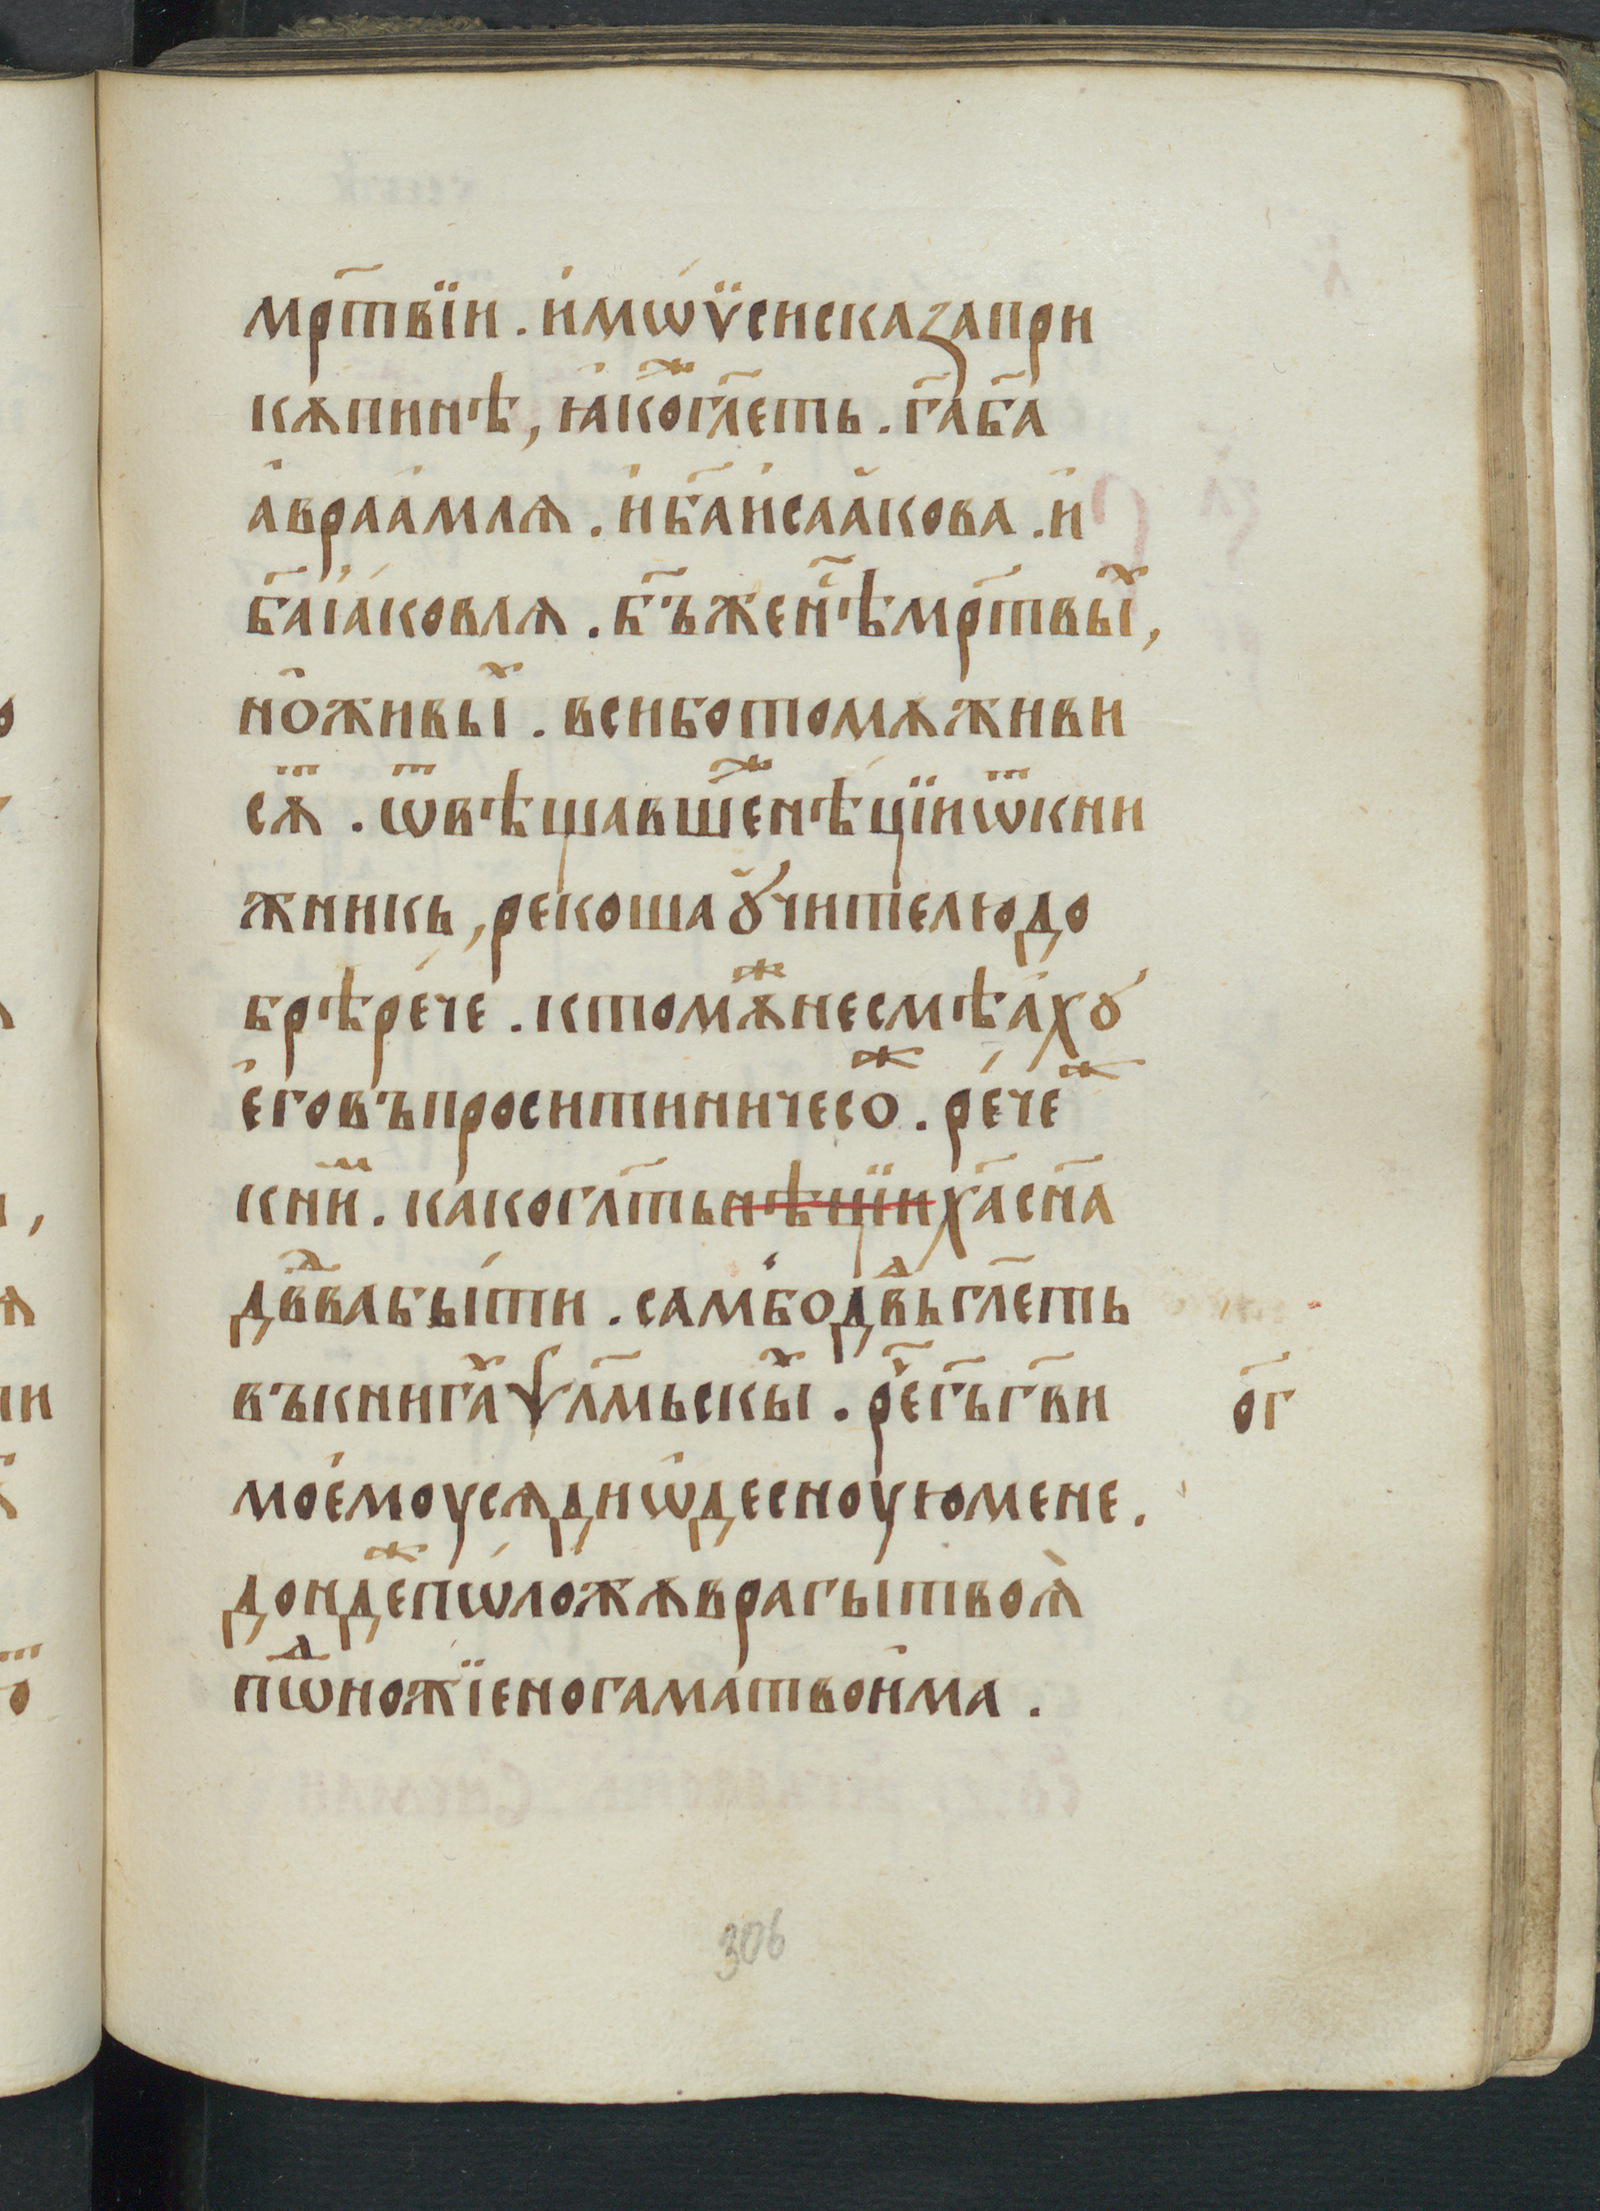 мр҃твїи . и҆ мѡѵ̈си сказа при
кѫпинѣ , ꙗ҆коⷤ гл҃еть . га҃ ба҃
а҆враа҆млѧ . и҆ ба҃ и҆саа҆кова . и҆
ба҃ і҆а҆ковлѧ . бъ҃ же нѣ҃ мр҃твыⷯ ,
но҆ живыⷯ . вси бо томѫ живи
сѫⷮ . ѿвѣщавшеⷤ нѣцїи ѿ кни
жникь , рекоша ꙋчителю до
брѣ рече . к томѫⷤ не смѣа҆хꙋ
е҆го въпросити ничесоⷤ . речеⷤ
книⷨ . како гл҃ть нѣцїи ха҃ сн҃а
дв҃ⷣва быти . сам бо дв҃ⷣь гл҃еть
въ книгаⷯ ѱл҃мьскыⷯ . рⷱ҇е гъ҃ гв҃и
мое҆моу сѧди ѡ҆десноую мене .
дондеⷤ пѡложѫ врагы твоѧ
пѡⷣножїе ногама твои҆ма .
о҃г
306